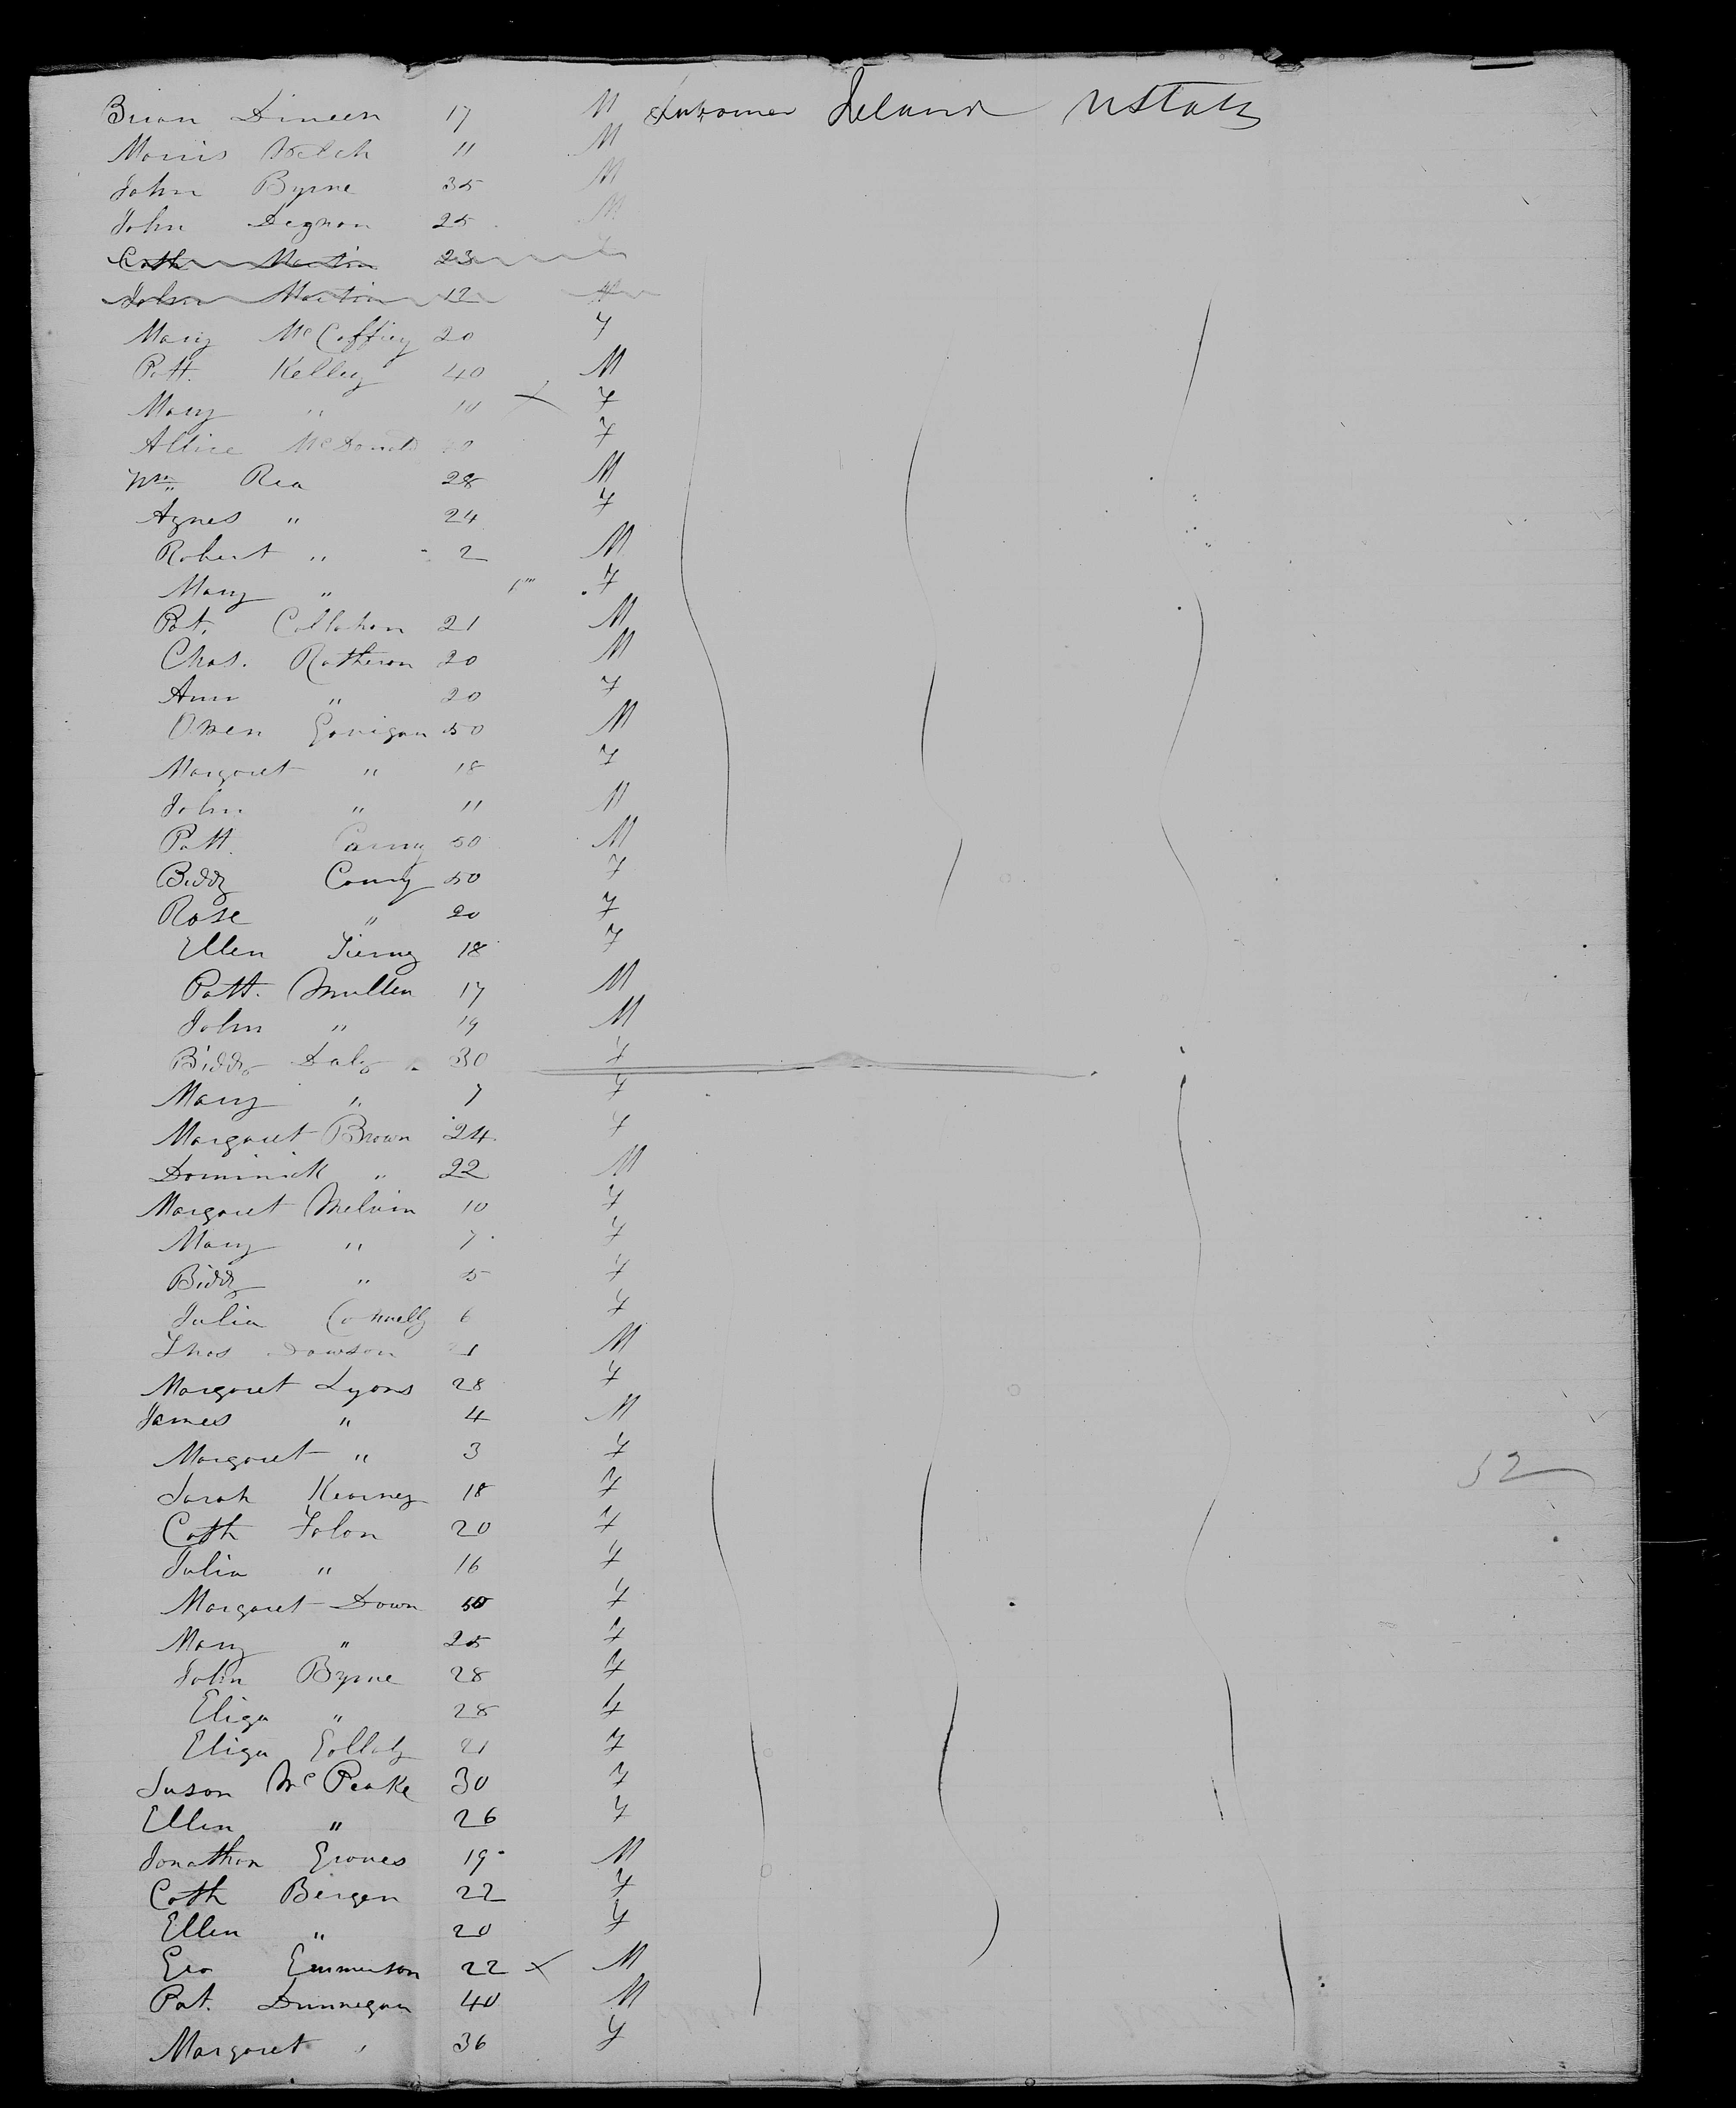 Brian Dineen 17 M Labourer Ireland UStates
Morris Welch 11 M
John Byrne 35 M
John Degnon 25 M
Cath Martin 23
John Martin 12 M
Mary McCaffrey 20 F
Patt. Kelley 40 M
Mary " 10 x F
Allice McDonald F
Wm Rea 28 M
Agnes " 24 F
Robert " 2 M
Mary " F
Pat. Callahan 21 M
Chas. Ratheron 20 M
Ann " 20 F
Owen Garrigan 50 M
Margaret " 18 F
John " 11 M
Patt. 50 M
Biddy 50 F
Rose " 20 F
Ellen Tierney 18 F
Patt. Mullen 17 M
John " 19 M
Biddy Daly 30 F
Mary " 7 F
Margaret Brown 24 F
Dominick " 22 M
Margaret Melvin 10 F
Mary " 7 F
Biddy " 5 F
Julia Connelly 6 F
Thos Dawson 21 M
Margaret Lyons 28 F
James " 4 M
Margaret " 3 F
52
Sarah Kearney 18 F
Cath Folon 20 F
Julia " 16 F
Margaret Down 50 F
Mary " 25 F
John Byrne 28 F
Eliza " 28 F
Eliza 21 F
Suson McPeake 30 F
Ellen " 26 F
Jonathon Groves 19 M
Cath Bergen 22 F
Ellen " 20 F
Geo Emmerson 22 x M
Pat. Dunnegan 40 M
Margaret " 36 F